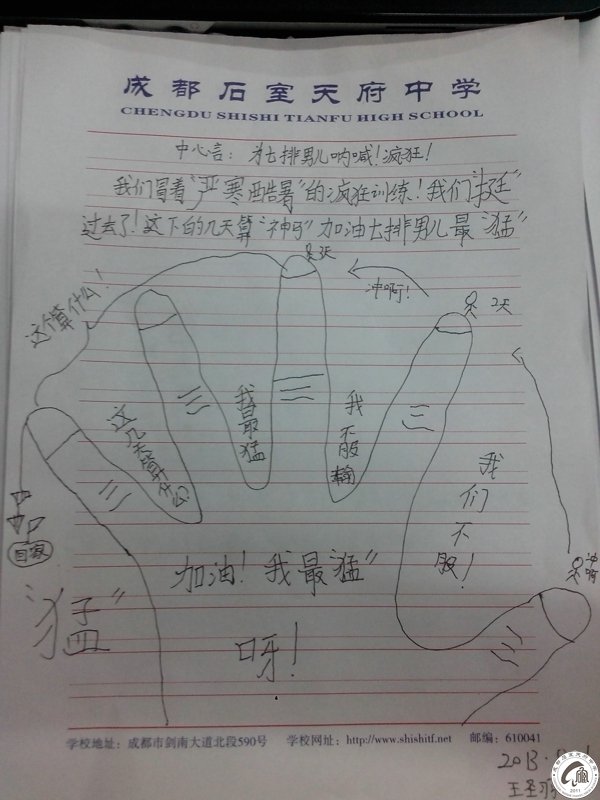 成都石室天府中学
CHENGDU SHISHI TIANFU HIGH SCHOOL
中心言：为七排男儿呐喊！疯狂！
我们冒着“严寒酷暑”的疯狂训练！我们“挺”
过去了！这下的几天算“神吗”加油七排男儿最“猛”
3天
这个算什么！
冲啊！
2天
这几天算什么
我最猛
我不服
我们不服！
回家
冲啊
加油！我最“猛”
“猛”
呀！
学校地址：成都市剑南大道北段590号 学校网址：http://www.shishitf.net 邮编：610041
2013.
王圣
2011